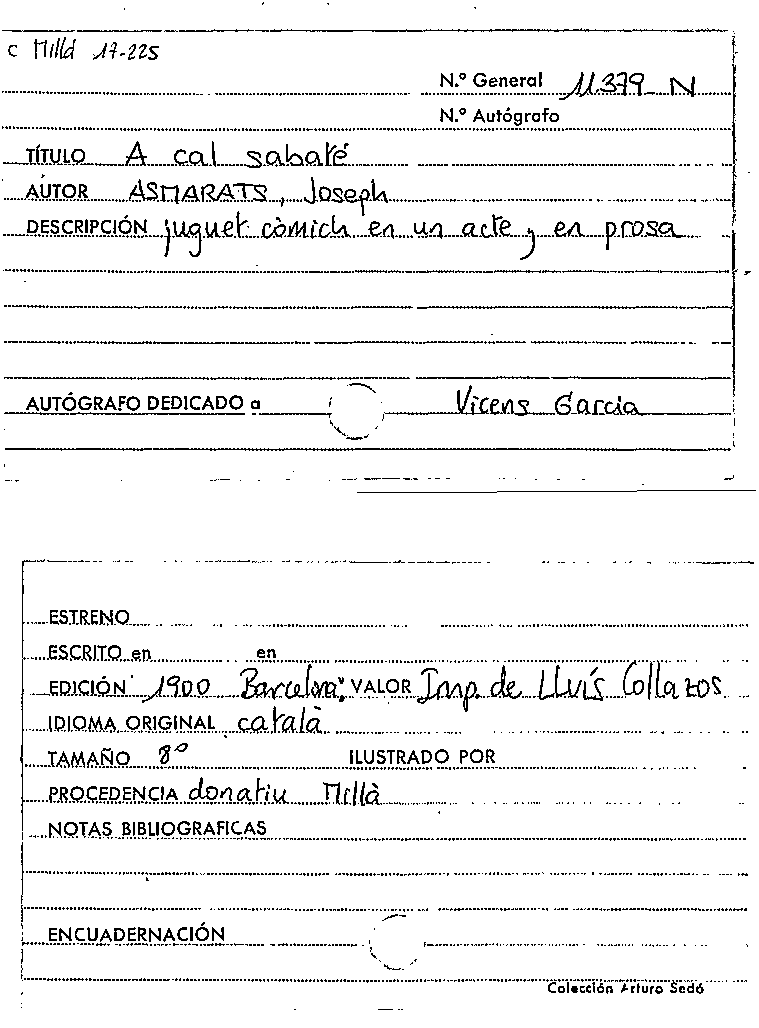 C Millà 17-225
N.º General 11.379 N
N.º Autógrafo
TÍTULO A cal sabaté
AUTOR ASMARATS, Joseph
DESCRIPCIÓN juguet còmich en un acte y en prosa
AUTÓGRAFO DEDICADO a Vicens Garcia
ESTRENO
ESCRITO en en
EDICIÓN 1900 Barcelona: VALOR Imp. de Lluís Collazos
IDIOMA ORIGINAL català
TAMAÑO 8º ILUSTRADO POR
PROCEDENCIA donatiu Millà
NOTAS BIBLIOGRAFICAS
ENCUADERNACIÓN
Colección Arturo Sedó